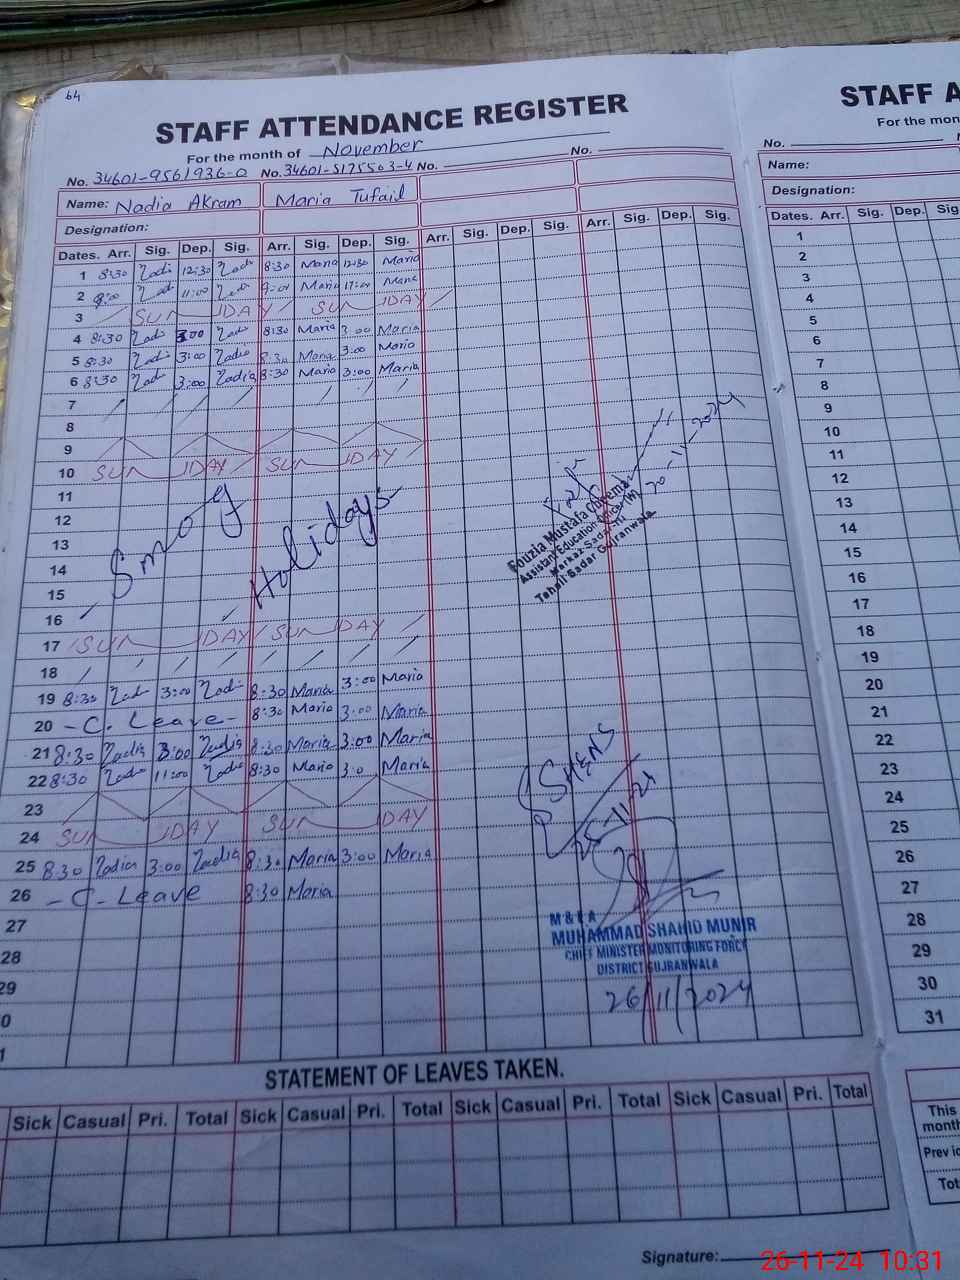 64
STAFF ATTENDANCE REGISTER
For the month of November
No. 34601-9561936-0 No. 34601-5175503-4 No. No.
Name: Nadia Akram Maria Tufail
Designation:
Dates. Arr. Sig. Dep. Sig. Arr. Sig. Dep. Sig. Arr. Sig. Dep. Sig. Arr. Sig. Dep. Sig.
1 8:30 Nadi 12:30 Nadi 8:30 Maria 12:30 Maria
2 9:00 Nadi 11:00 Nadi 9:00 Maria 11:00 Maria
3 SUN DAY SUN DAY
4 8:30 Nadi 3:00 Nadi 8:30 Maria 3:00 Maria
5 8:30 Nadi 3:00 Nadia 8:30 Maria 3:00 Maria
6 8:30 Nadi 3:00 Nadia 8:30 Maria 3:00 Maria
7
8
9
10 SUN DAY SUN DAY
11
12
13
14
15
Smog Holidays
16
17 SUN DAY SUN DAY
18
19 8:30 Nadi 3:00 Nadi 8:30 Maria 3:00 Maria
20 - C. Leave - 8:30 Maria 3:00 Maria
21 8:30 Nadia 3:00 Nadia 8:30 Maria 3:00 Maria
22 8:30 Nadi 11:00 Nadi 8:30 Maria 3:0 Maria
23
24 SUN DAY SUN DAY
25 8:30 Nadia 3:00 Nadia 8:30 Maria 3:00 Maria
26 - C. Leave 8:30 Maria
27
28
29
0
1
20-11-2024
Fouzia Mustafa Cheema
Assistant Education Officer (W)
Markaz Sadar
Tehsil Sadar Gujranwala
25-11-24
M & E A
MUHAMMAD SHAHID MUNIR
CHIEF MINISTER MONITORING FORCE
DISTRICT GUJRANWALA
26/11/2024
STATEMENT OF LEAVES TAKEN.
Sick Casual Pri. Total Sick Casual Pri. Total Sick Casual Pri. Total Sick Casual Pri. Total
Signature:
STAFF A
For the mon
No. No.
Name:
Designation:
Dates. Arr. Sig. Dep. Sig
1
2
3
4
5
6
7
8
9
10
11
12
13
14
15
16
17
18
19
20
21
22
23
24
25
26
27
28
29
30
31
This
month
Previo
Tot
26-11-24 10:31